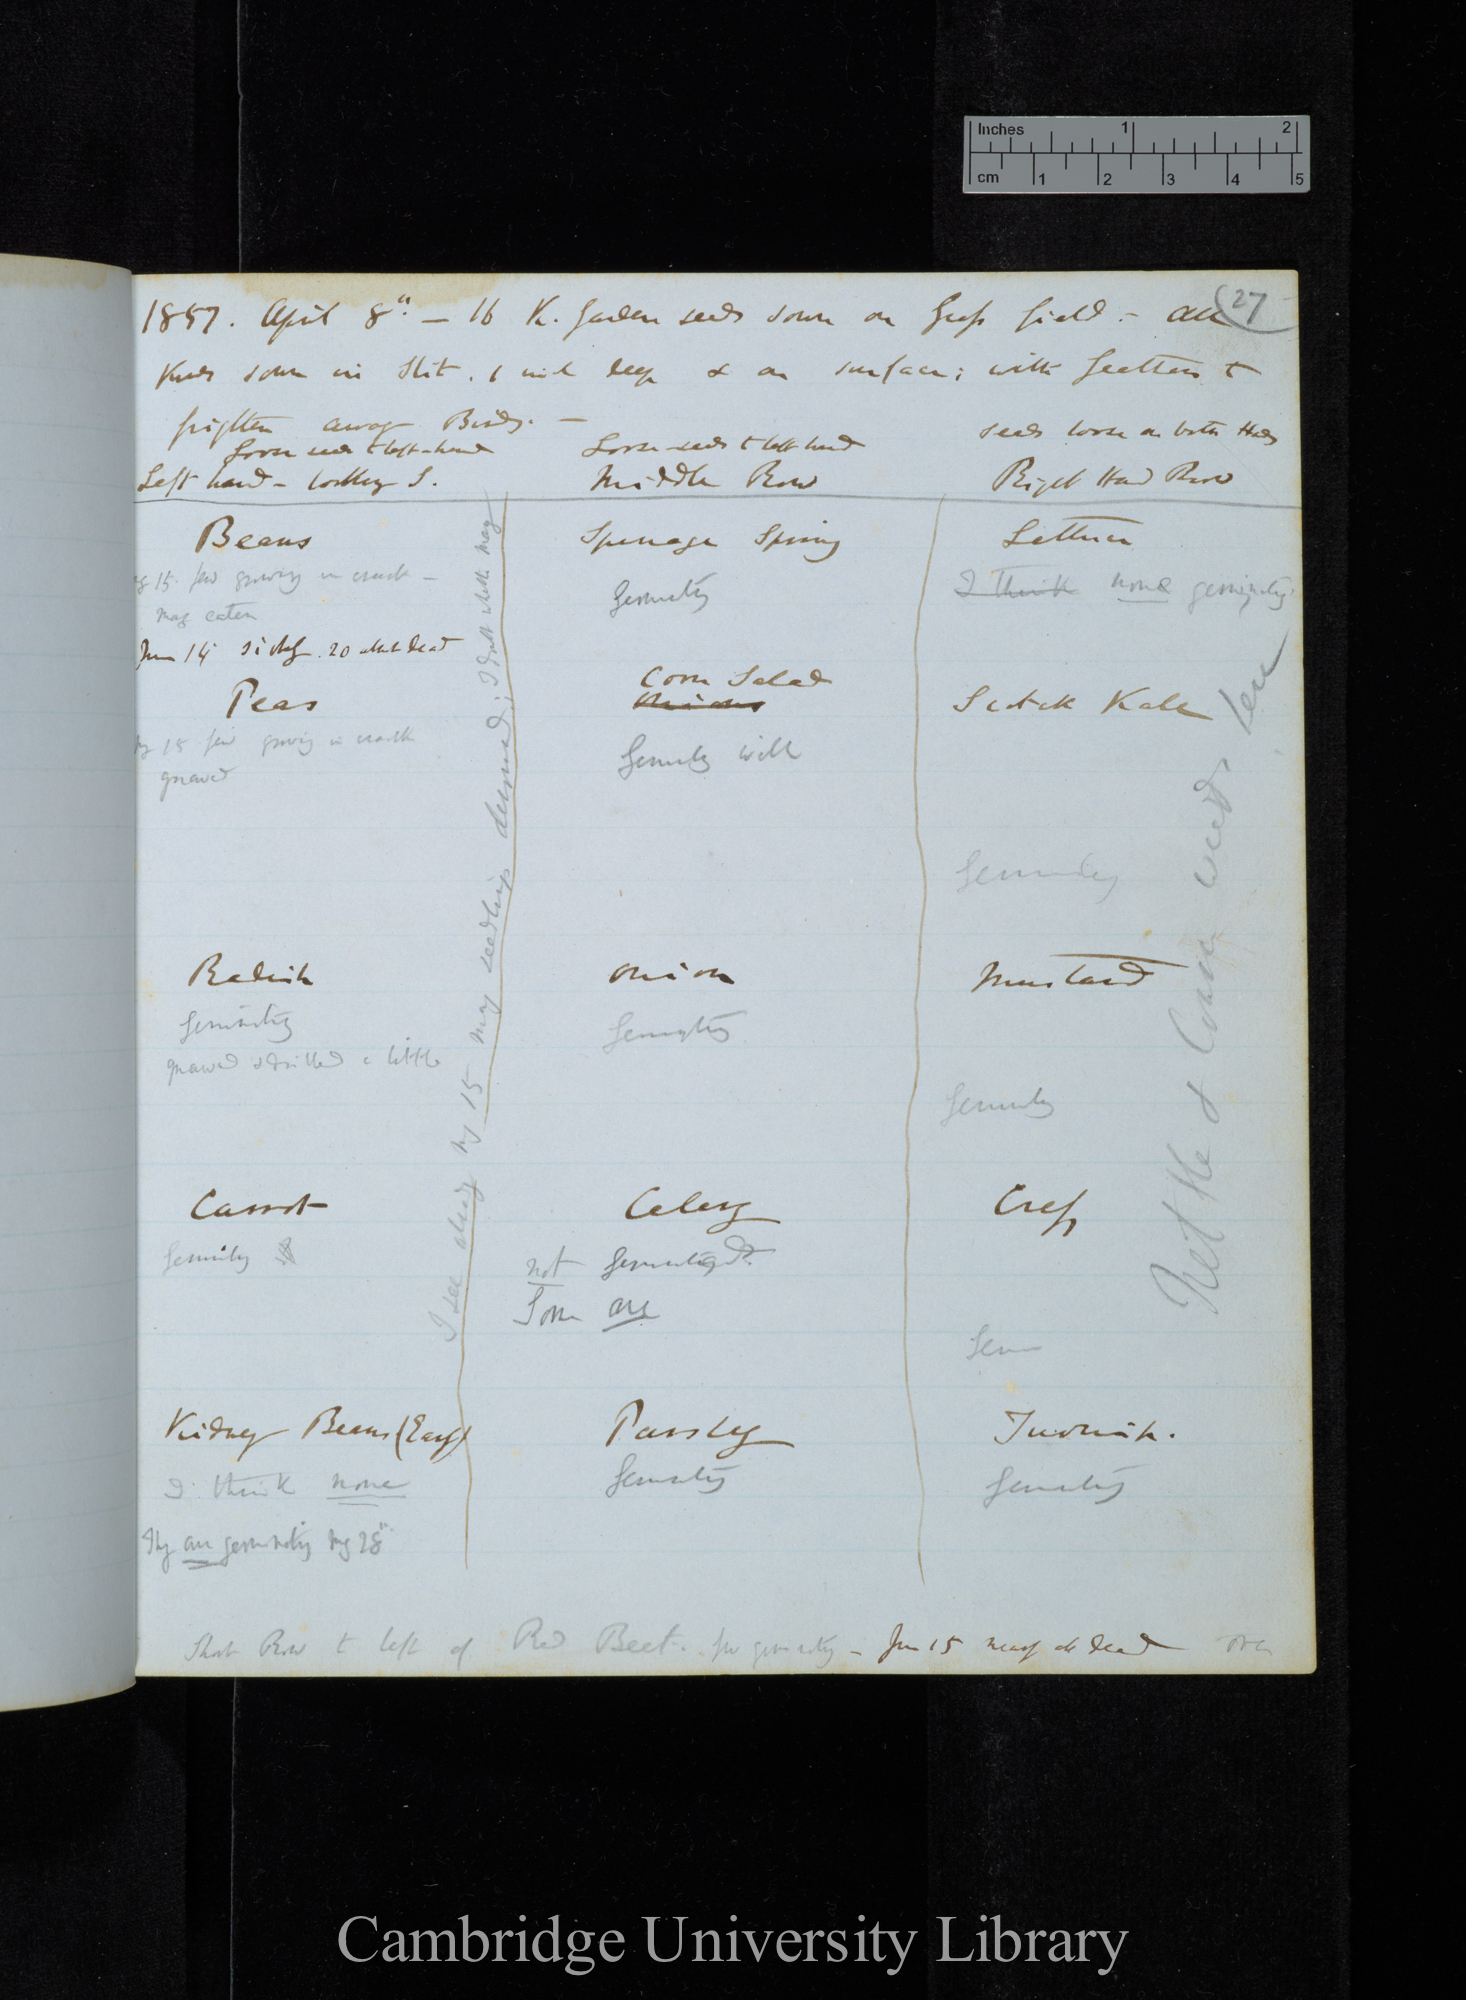 Inches 1 2
cm 1 2 3 4 5
27
1857. April 8th. — 16 K. Garden seeds sown on Grass field. — All
kinds sown in slit. 1 inch deep & on surface; with feathers to
frighten away Birds. —
Loose seeds to left-hand
Left hand — looking S.
Loose seeds to left hand
Middle Row
seeds loose on both Hands
Right Hand Row
Beans
15. few growing in crack —
many eaten
June 14 sickly. 20 dead
Peas
15 few growing in crack
gnawed
Radish
Germinating
gnawed & a little
Carrot
Germinating
Kidney Beans (Early)
I think none
They are germinating May 28th
I see already May 15 many seedlings destroyed; I doubt whether many
Spinage Spring
Germinating
Corn Salad
Onions
Germinating well
Onion
Germinating
Celery
not Germinating
Some are
Parsley
Germinating
Lettuce
I think none germinating
Scotch Kale
Germinating
Mustard
Germinating
Cress
Germ
Turnip.
Germinating
Nettle & Comm weeds
Short Row to left of Red Beet. few germinating — June 15 nearly all dead over
Cambridge University Library